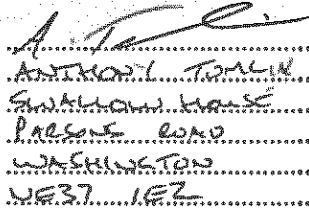 ANTHONY TOMLIN
SWALLOW HOUSE
PARSONS ROAD
WASHINGTON
NE37 1EZ